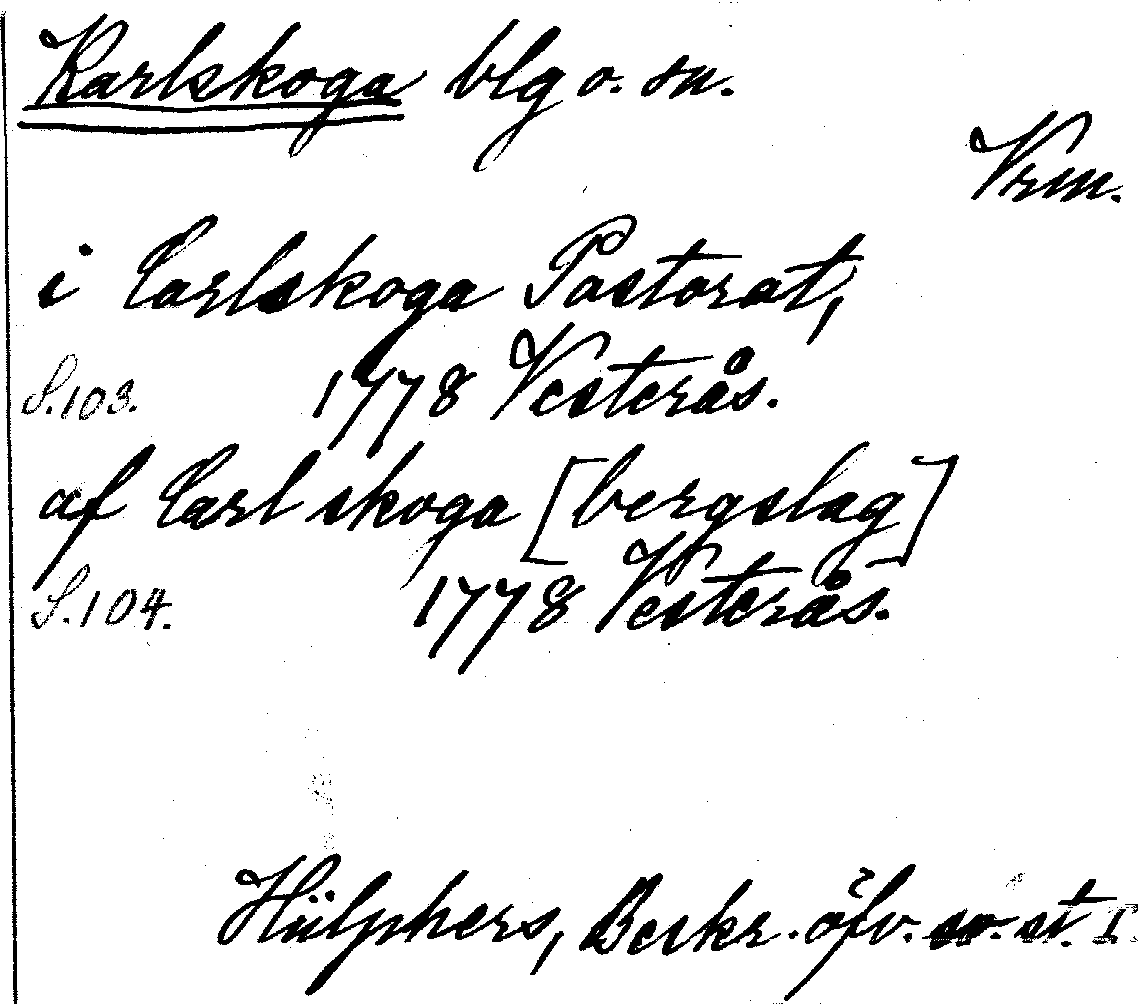 Karlskoga blg o. sn.
Vrm.
i Carlskoga Pastorat,
S.103. 1778 Vesterås.
af Carlskoga [bergslag]
S.104. 1778 Vesterås.
Hülphers, Beskr. öfv. sv. st. I.